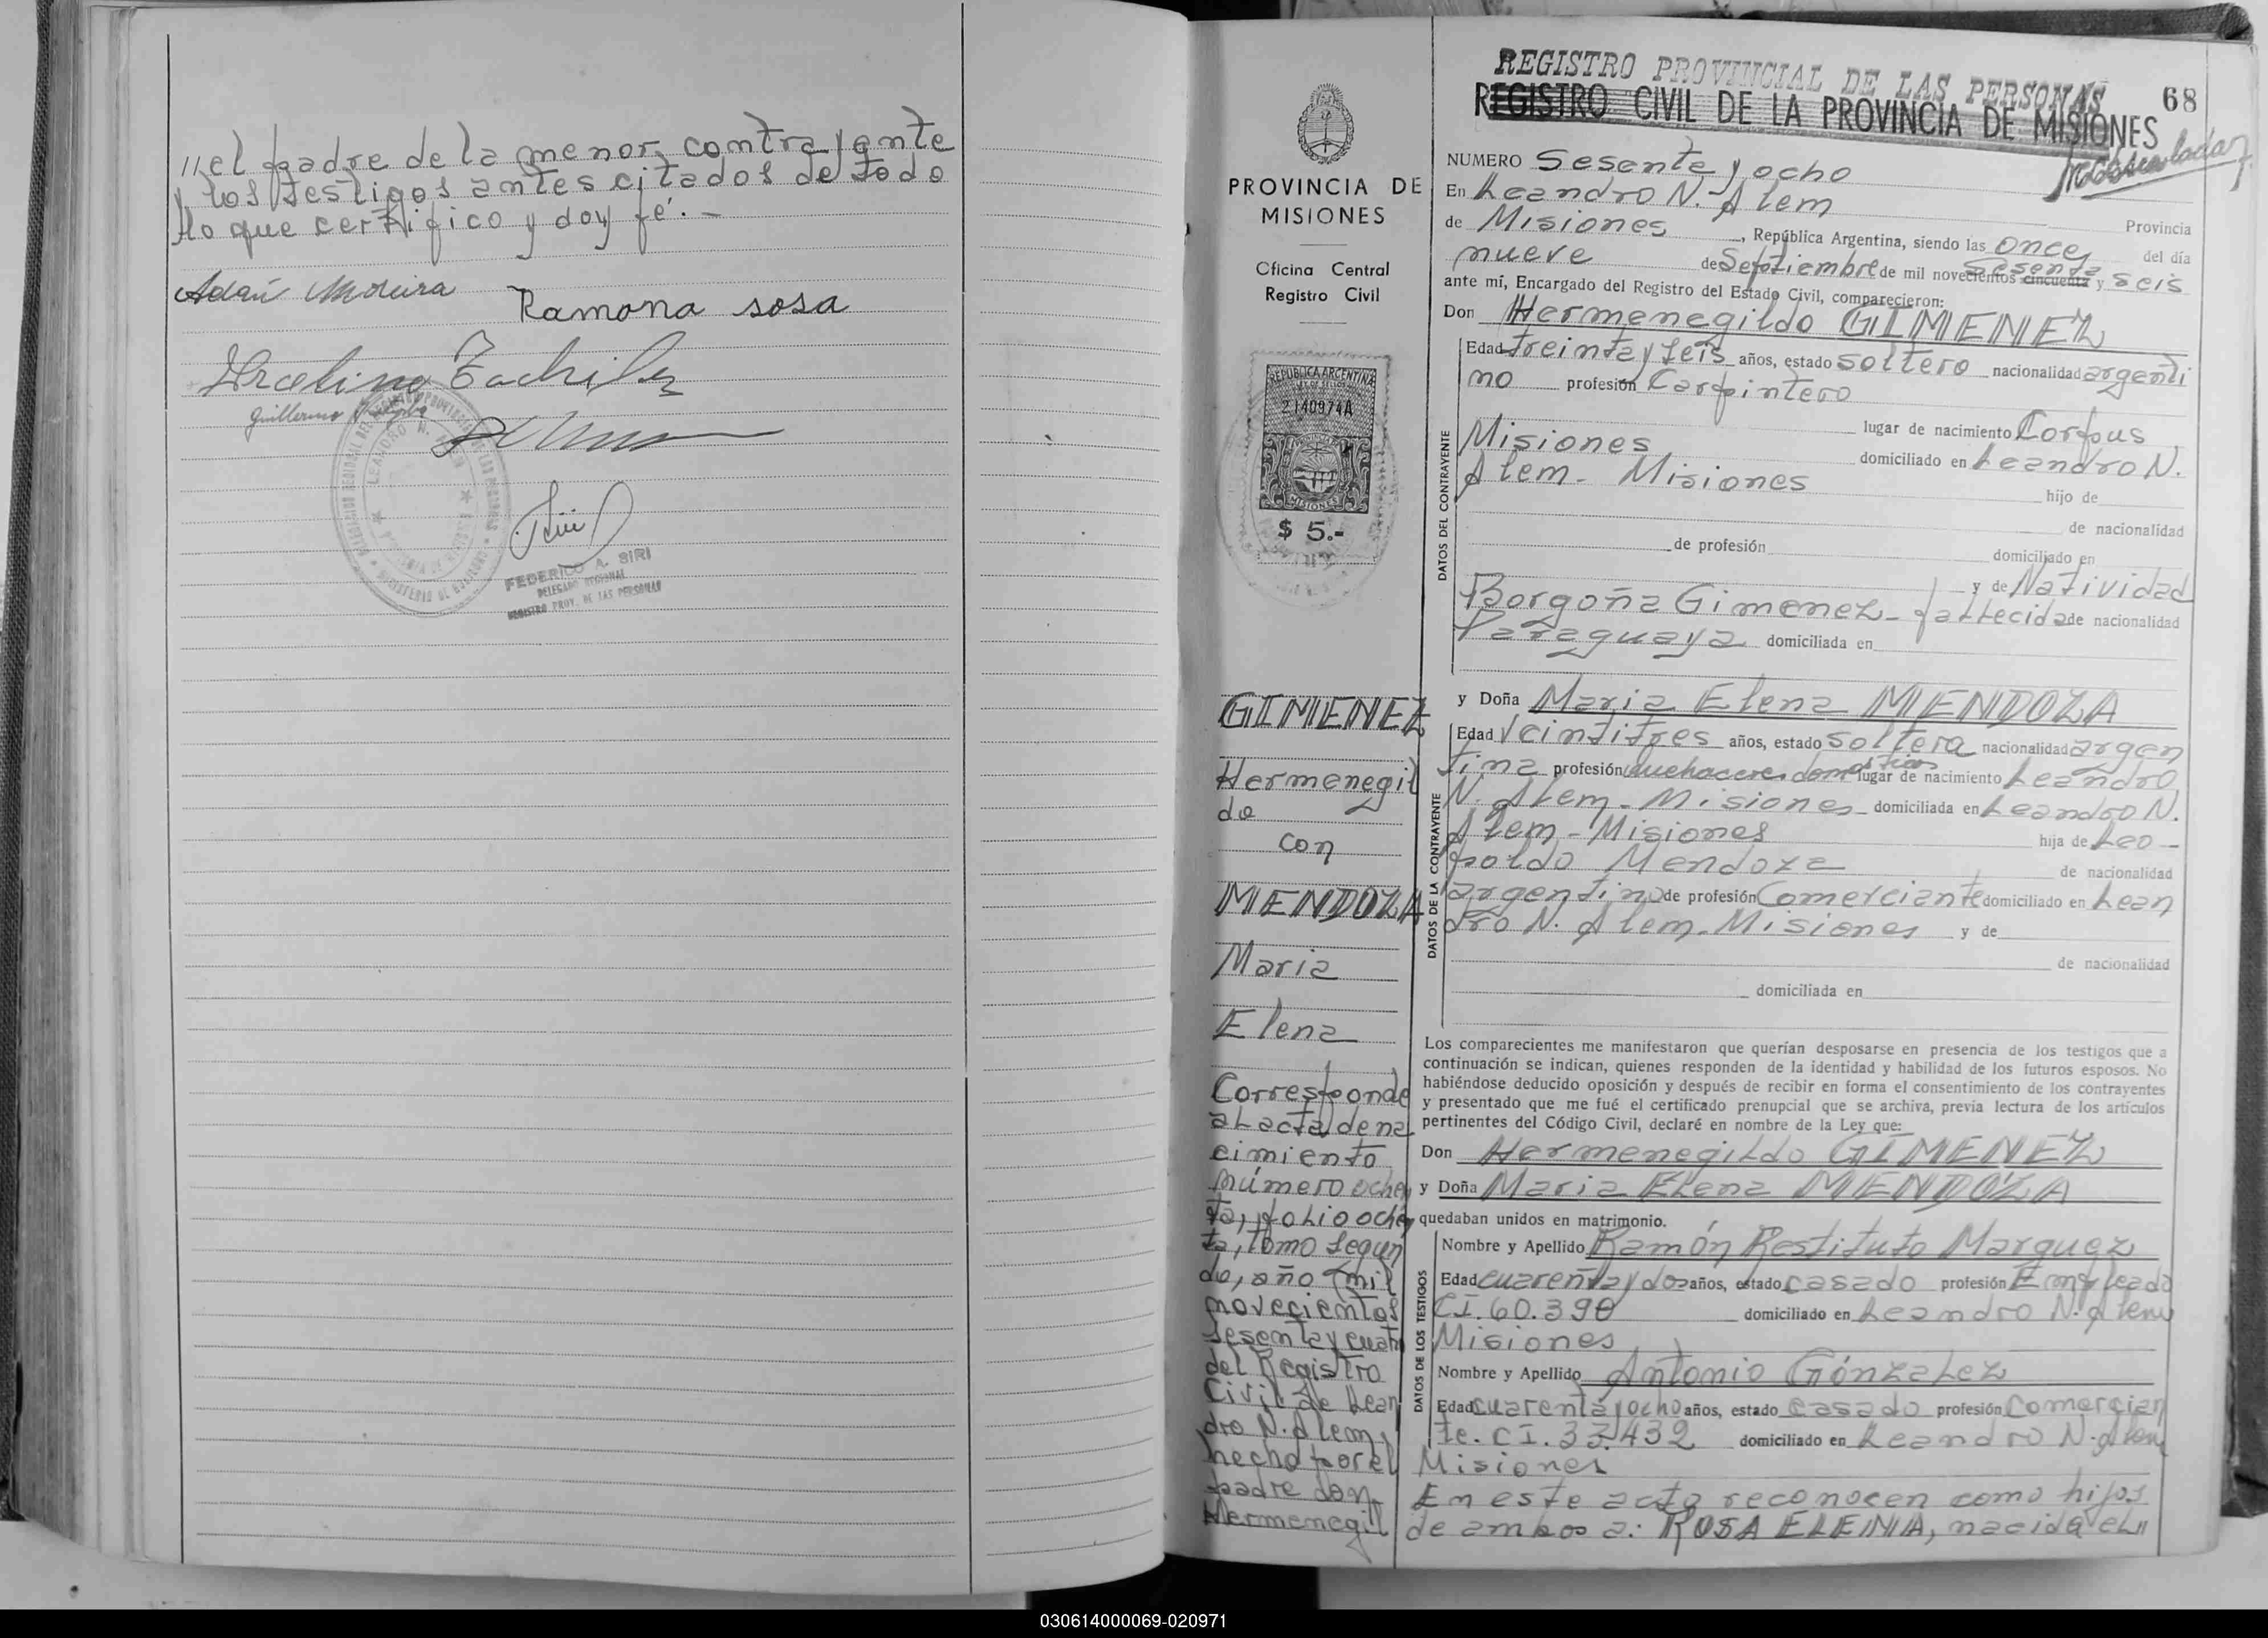 //el padre de la menor contrayente
y los testigos antes citados de todo
lo que certifico y doy fé.-
Adan Moreira
Ramona sosa
Guillermo
FEDERICO A. SIRI
DELEGADO REGIONAL
REGISTRO PROV. DE LAS PERSONAS
PROVINCIA DE
MISIONES
Oficina Central
Registro Civil
REPUBLICA ARGENTINA
LEY DE SELLOS
2140974A
MISIONES
$ 5.-
GIMENEZ
Hermenegil
do
con
MENDOZA
Maria
Elena
Corresponde
al acta de na
cimiento
número ochen
ta, folio ochen
ta, tomo segun
do, año mil
novecientos
sesenta y cuatro
del Registro
Civil de Lean
dro N. Alem,
hecho por el
padre don
Hermenegil
REGISTRO PROVINCIAL DE LAS PERSONAS
REGISTRO CIVIL DE LA PROVINCIA DE MISIONES
68
NUMERO Sesenta y ocho
En Leandro N. Alem
Provincia
de Misiones, República Argentina, siendo las once del día
nueve de Septiembre de mil novecientos cincuenta sesenta y seis
ante mí, Encargado del Registro del Estado Civil, comparecieron:
Don Hermenegildo GIMENEZ
DATOS DEL CONTRAYENTE
Edad treinta y seis años, estado soltero nacionalidad argenti
no profesión Carpintero
lugar de nacimiento Corpus
Misiones domiciliado en Leandro N.
Alem - Misiones hijo de
de nacionalidad
de profesión domiciliado en
y de Natividad
Borgoña Gimenez - fallecida de nacionalidad
Paraguaya domiciliada en
y Doña Maria Elena MENDOZA
DATOS DE LA CONTRAYENTE
Edad Veintitres años, estado soltera nacionalidad argen
tina profesión quehaceres domesticos lugar de nacimiento Leandro
N. Alem - Misiones - domiciliada en Leandro N.
Alem - Misiones hija de Leo -
poldo Mendoza de nacionalidad
argentino de profesión Comerciante domiciliado en Lean
dro N. Alem - Misiones y de
de nacionalidad
domiciliada en
Los comparecientes me manifestaron que querían desposarse en presencia de los testigos que a
continuación se indican, quienes responden de la identidad y habilidad de los futuros esposos. No
habiéndose deducido oposición y después de recibir en forma el consentimiento de los contrayentes
y presentado que me fué el certificado prenupcial que se archiva, previa lectura de los artículos
pertinentes del Código Civil, declaré en nombre de la Ley que:
Don Hermenegildo GIMENEZ
y Doña Maria Elena MENDOZA
quedaban unidos en matrimonio.
DATOS DE LOS TESTIGOS
Nombre y Apellido Ramón Restituto Marquez
Edad cuarenta y dos años, estado casado profesión Empleado
CI. 60.390 domiciliado en Leandro N. Alem
Misiones
Nombre y Apellido Antonio Gónzalez
Edad cuarenta y ocho años, estado casado profesión Comercian
te. CI. 33.432 domiciliado en Leandro N. Alem
Misiones
En este acto reconocen como hijos
de ambos a: ROSA ELENA, nacida el//
030614000069-020971